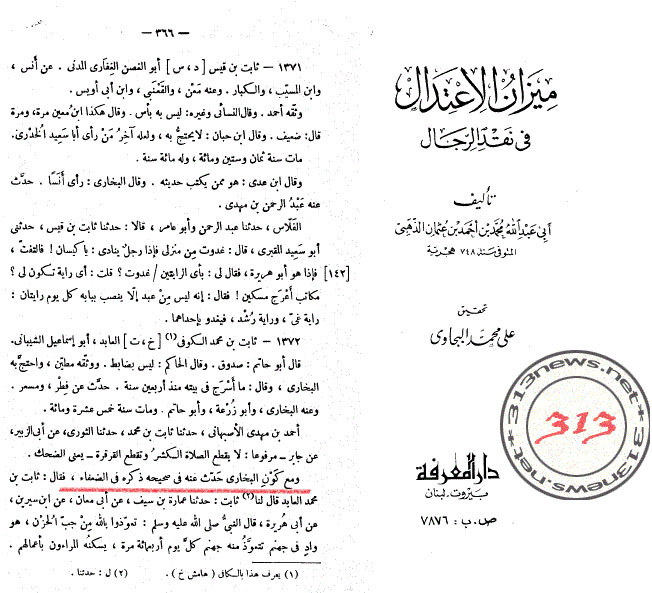 — ٣٦٦ —
١٣٧١ — ثابت بن قيس [ د ، س ] أبو الغصن الغِفَارى المدنى . عن أنس ،
وابن المسيّب ، والكبار . وعنه مَعْن ، والقَعْنَبى ، وابن أبى أويس .
وثّقه أحمد . وقال النسائى وغيره: ليس به بأس . وقال هكذا ابن معين مرة، ومرة
قال: ضعيف . وقال ابن حبان : لا يحتجّ به ، ولعله آخِرُ مَنْ رأى أبا سَعِيد الخدْرى.
مات سنة ثمان وستين ومائة ، وله مائة سنة .
وقال ابن عدى : هو ممن يكتب حديثه . وقال البخارى : رأى أنَسًا . حدّث
عنه عَبْدُ الرحمن بن مهدى .
الفَلّاس ، حدثنا عبد الرحمن وأبو عامر ، قالا : حدثنا ثابت بن قيس ، حدثنى
أبو سَعِيد المقبرى ، قال : غدوت من منزلى فإذا رجلٌ ينادى : يا كيسان ! فالتفتّ ،
[١٤٢] فإذا هو أبو هريرة ، فقال لى : بأى الرايتين / غدوت ؟ قلت : أى راية تسكون لى ؟
مكاتب أَعْرَج مسكين ! فقال : إنه ليس مِنْ عبد إلا ينصب ببابه كل يوم رايتان :
راية غىّ ، وراية رُشْد ، فيغدو بإحداهما .
١٣٧٢ — ثابت بن محمد الكوفى (١) [ خ ، ت ] العابد ، أبو إسماعيل الشيبانى.
قال أبو حاتم : صدوق . وقال الحاكم : ليس بضابط . ووثّقه مطيّن ، واحتجَّ به
البخارى ، وقال : ما أَسْرَج فى بيته منذ أربعين سنة . حدّث عن فِطْر ، ومسعر .
وعنه البخارى ، وأبو زُرْعة ، وأبو حاتم . ومات سنة خمس عشرة ومائة .
أحمد بن مهدى الأصبهانى ، حدثنا ثابت بن محمد ، حدثنا الثورى، عن أبى الزبير،
عن جابر — مرفوعا : لا يقطع الصلاة الكشْرُ وتقطع القرقرة — يعنى الضحك .
ومع كَوْنِ البخارى حَدّث عنه فى صحيحه ذكره فى الضعفاء ، فقال : ثابت بن
محمد العابد قال لنا (٢) ثابت : حدثنا عمارة بن سيف ، عن أبى معان ، عن ابن سيرين ،
عن أبى هُريرة ، قال النبىُّ صلى الله عليه وسلم : تعوّذوا بالله مِنْ جبّ الحُزْن ، هو
وادٍ فى جهنم تتعوّذُ منه جهنم كلَّ يوم أربعمائة مرة ، يسكنُه المراءون بأعمالهم .
(١) يعرف هذا بالسكانى ( هامش خ ) . (٢) ل : حدثنا .
ميزان الاعتدال
فى نقد الرجال
تأليف
أبى عبد الله محمد بن أحمد بن عثمان الذهبى
المتوفى سنة ٧٤٨ هجرية
تحقيق
على محمد البجاوى
313news.net
313
313news.net
دار المعرفة
بيروت . لبنان
ص . ب : ٧٨٧٦